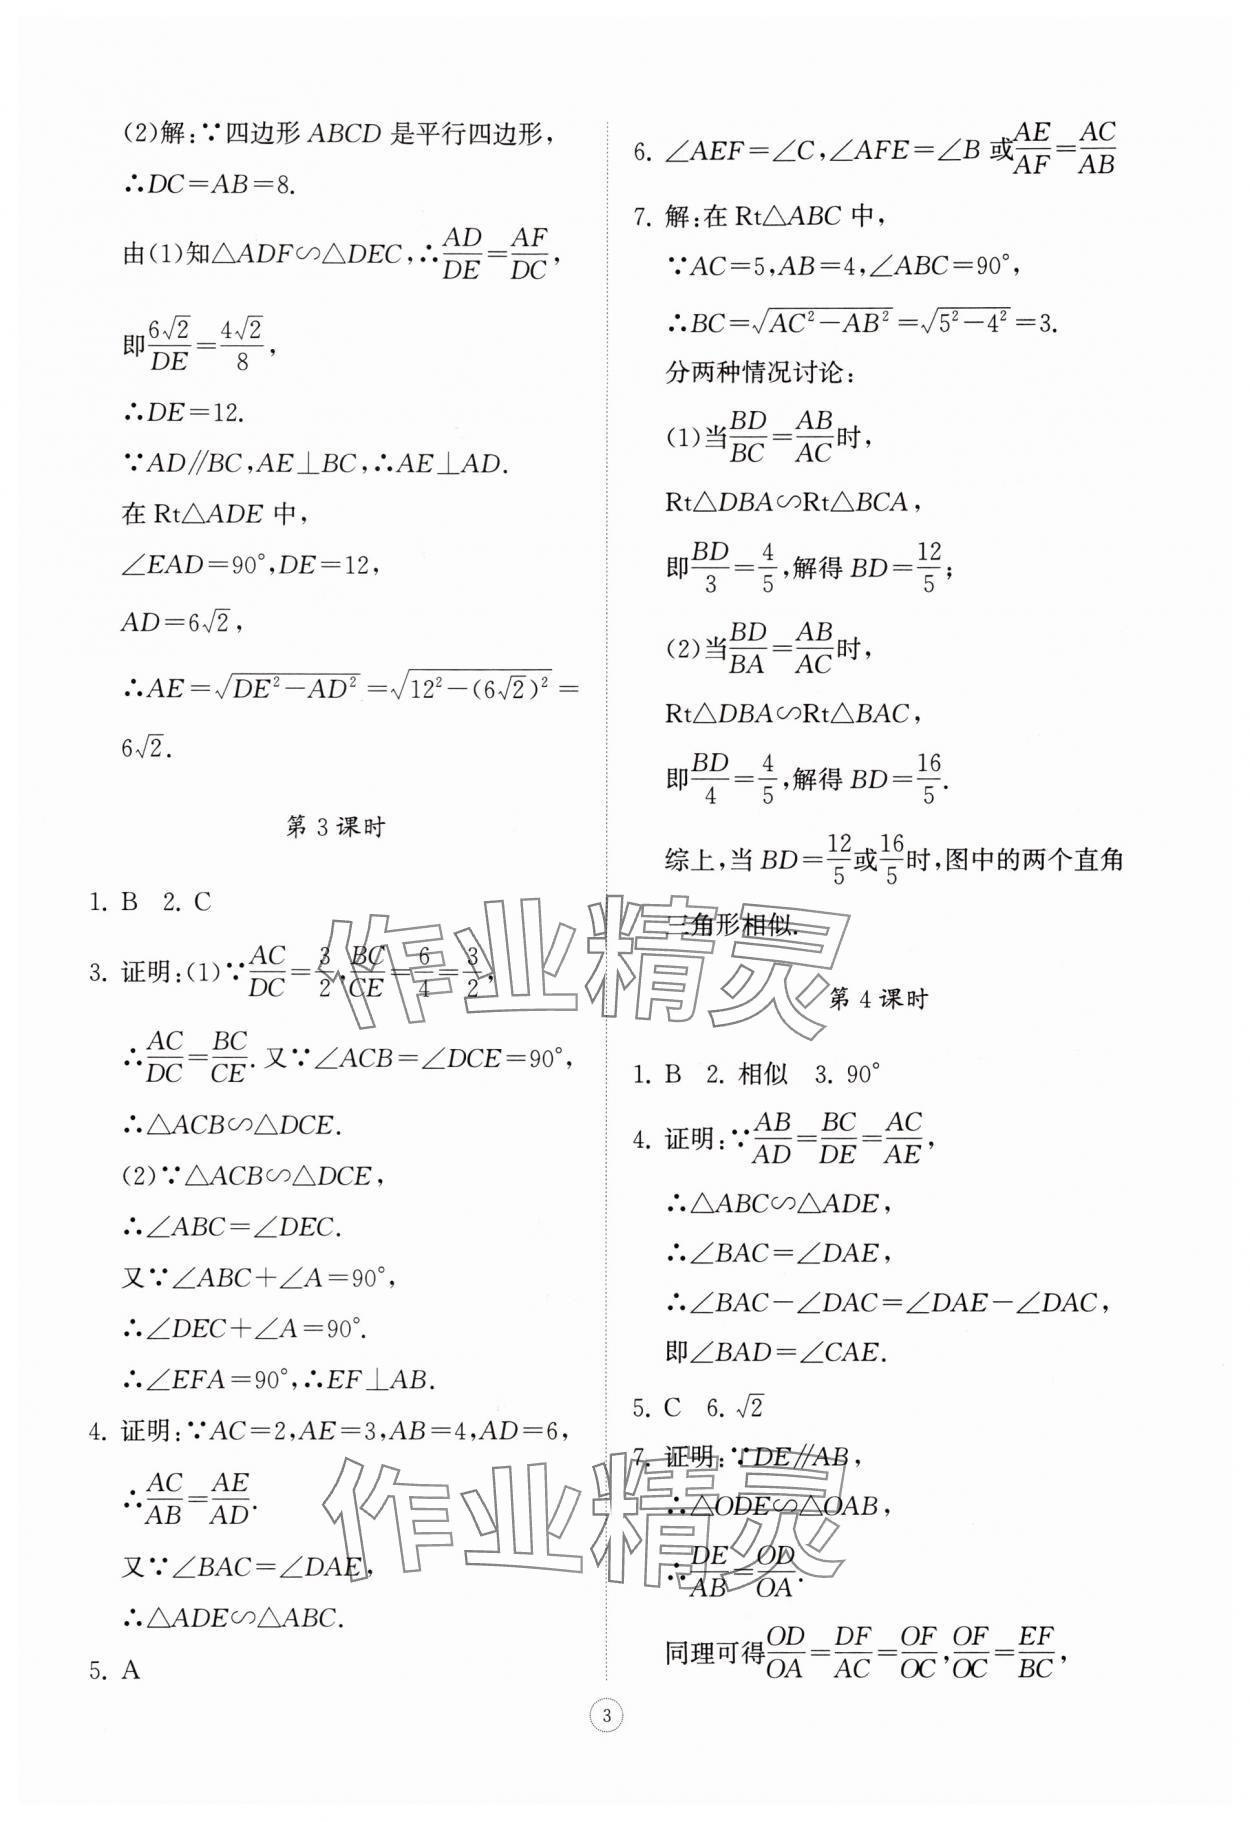 (2)解:∵四边形 ABCD 是平行四边形,
∴DC=AB=8.
由(1)知△ADF∽△DEC,∴AD/DE=AF/DC,
即6√2/DE=4√2/8,
∴DE=12.
∵AD∥BC,AE⊥BC,∴AE⊥AD.
在 Rt△ADE 中,
∠EAD=90°,DE=12,
AD=6√2,
∴AE=√(DE²-AD²)=√(12²-(6√2)²)=
6√2.
第 3 课时
1. B 2. C
3. 证明:(1)∵AC/DC=3/2,BC/CE=6/4=3/2,
∴AC/DC=BC/CE.又∵∠ACB=∠DCE=90°,
∴△ACB∽△DCE.
(2)∵△ACB∽△DCE,
∴∠ABC=∠DEC.
又∵∠ABC+∠A=90°,
∴∠DEC+∠A=90°.
∴∠EFA=90°,∴EF⊥AB.
4. 证明:∵AC=2,AE=3,AB=4,AD=6,
∴AC/AB=AE/AD.
又∵∠BAC=∠DAE,
∴△ADE∽△ABC.
5. A
6. ∠AEF=∠C,∠AFE=∠B 或AE/AF=AC/AB
7. 解:在 Rt△ABC 中,
∵AC=5,AB=4,∠ABC=90°,
∴BC=√(AC²-AB²)=√(5²-4²)=3.
分两种情况讨论:
(1)当BD/BC=AB/AC时,
Rt△DBA∽Rt△BCA,
即BD/3=4/5,解得 BD=12/5;
(2)当BD/BA=AB/AC时,
Rt△DBA∽Rt△BAC,
即BD/4=4/5,解得 BD=16/5.
综上,当 BD=12/5或16/5时,图中的两个直角
三角形相似.
第 4 课时
1. B 2. 相似 3. 90°
4. 证明:∵AB/AD=BC/DE=AC/AE,
∴△ABC∽△ADE,
∴∠BAC=∠DAE,
∴∠BAC-∠DAC=∠DAE-∠DAC,
即∠BAD=∠CAE.
5. C 6. √2
7. 证明:∵DE∥AB,
∴△ODE∽△OAB,
∴DE/AB=OD/OA.
同理可得OD/OA=DF/AC=OF/OC,OF/OC=EF/BC,
3
作业精灵
作业精灵